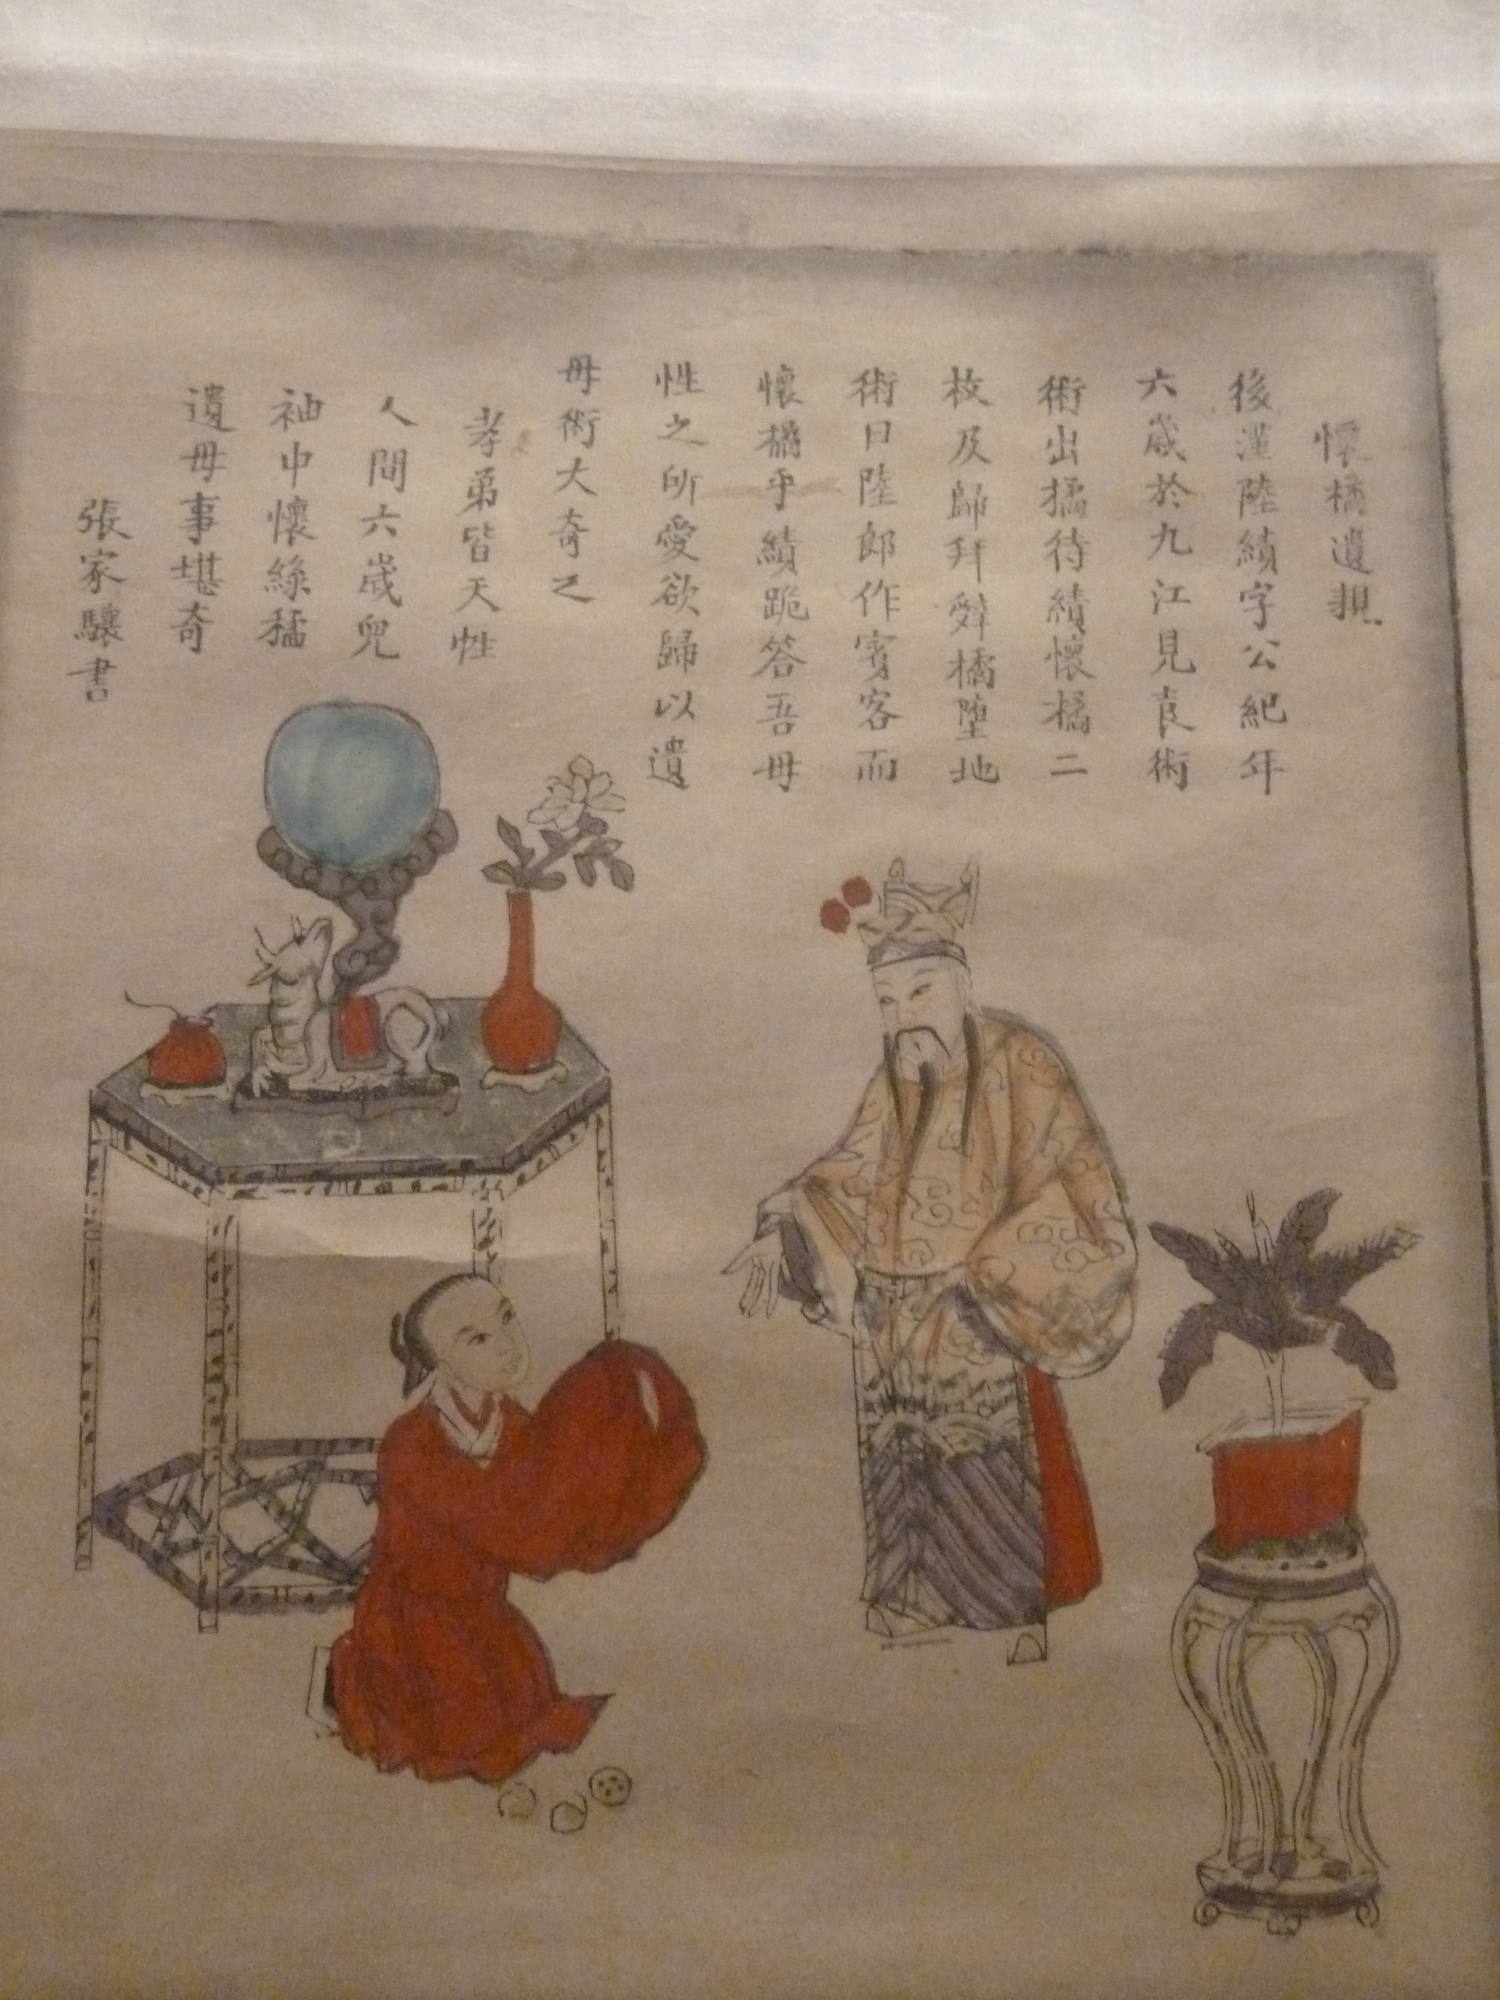 懷橘遺親
後漢陸績字公紀年
六歲於九江見袁術
術出橘待績懷橘二
枚及歸拜辭橘墮地
術曰陸郎作賓客而
懷橘乎績跪答吾母
性之所愛欲歸以遺
母術大奇之
孝弟皆天性
人間六歲兒
袖中懷綠橘
遺母事堪奇
張家驤書